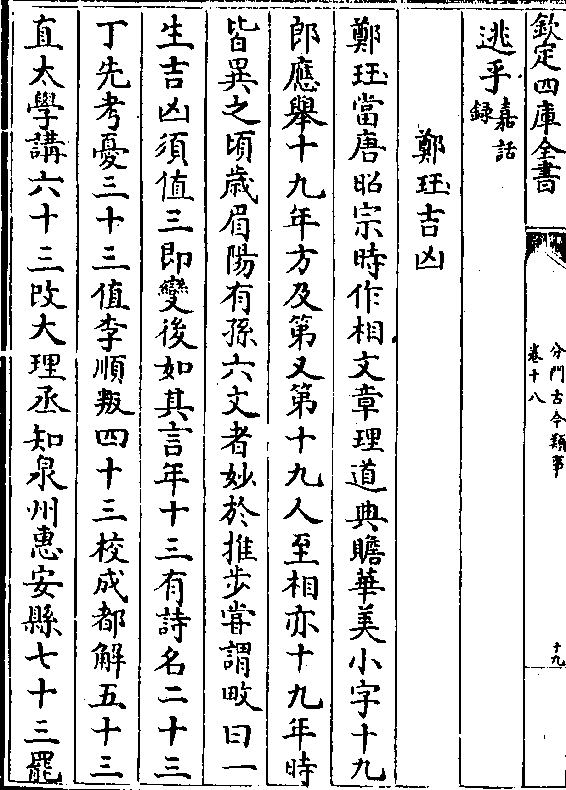 欽定四庫全書
分門古今類事
卷十八
十九
逃乎嘉話錄
鄭珏吉凶
鄭珏當唐昭宗時作相文章理道典贍華美小字十九
郎應舉十九年方及第又第十九人至相亦十九年時
皆異之頃歲眉陽有孫六文者妙於推步甞謂畋曰一
生吉凶須值三即變後如其言年十三有詩名二十三
丁先考憂三十三值李順叛四十三校成都解五十三
直太學講六十三改大理丞知泉州惠安縣七十三罷